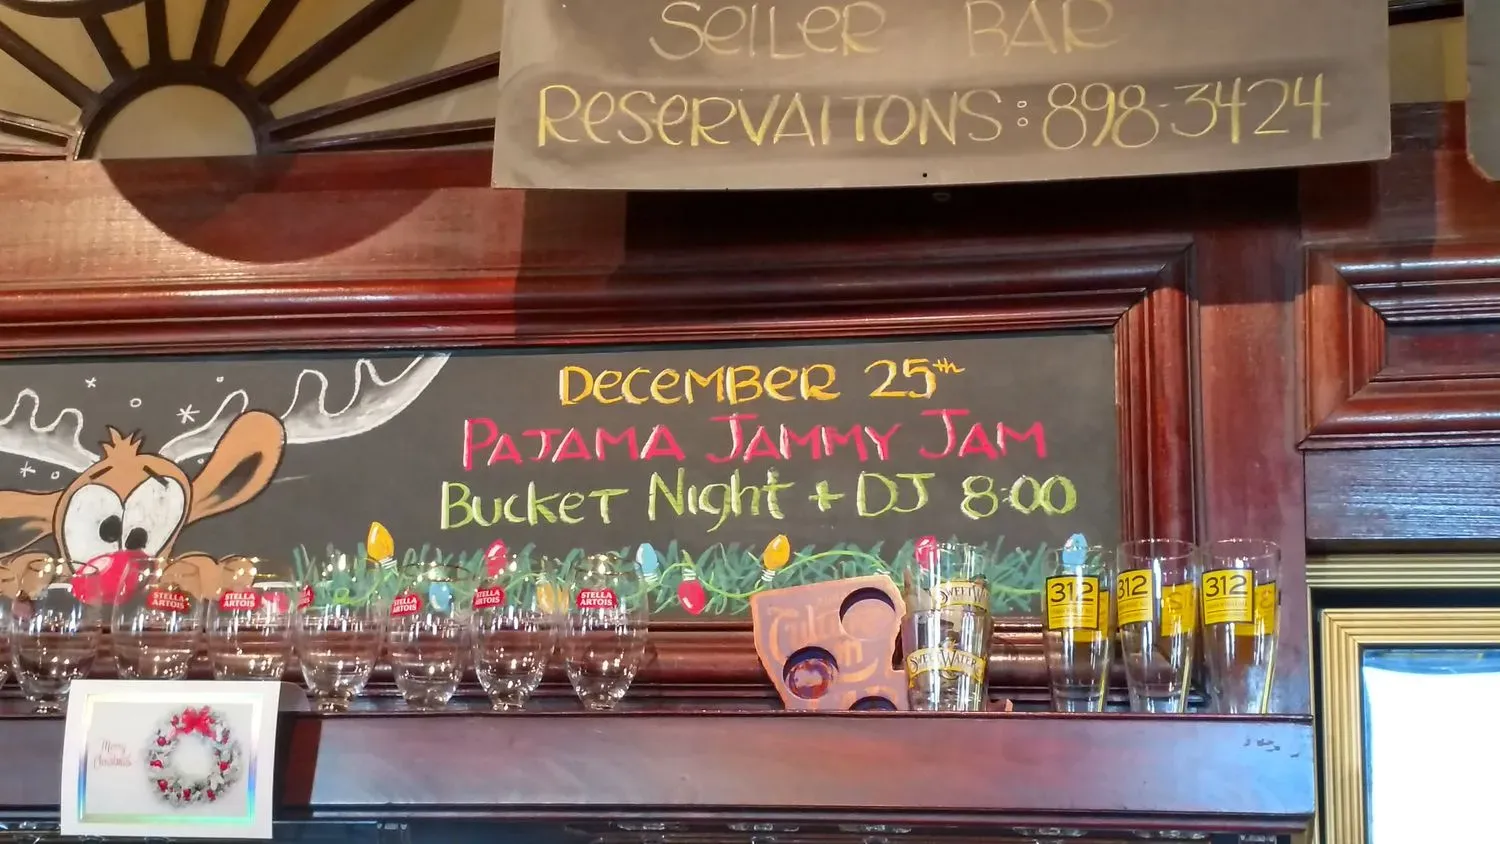 SeILeR BAR
ReSeRVAITONS: 898-3424
DeCeMBeR 25th
PAJAMA JAMMY JAM
BuckeT Night + DJ 8:00
STELLA ARTOIS
STELLA ARTOIS
STELLA ARTOIS
STELLA ARTOIS
STELLA ARTOIS
SWEETWATER
SWEETWATER
312
312
312
Merry
Christmas